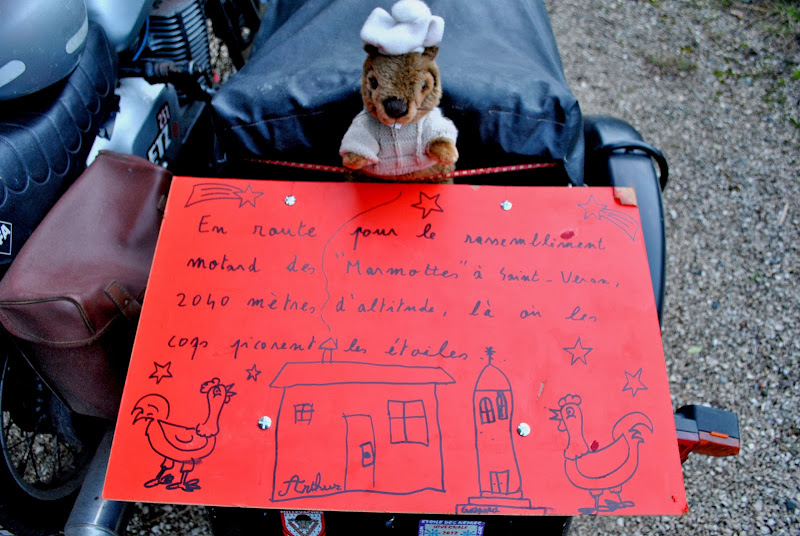 En route pour le rassemblement
motard des "Marmottes" à Saint-Veran,
2040 mètres d'altitude, là où les
coqs picorent les étoiles
Arthur
ETZ
251